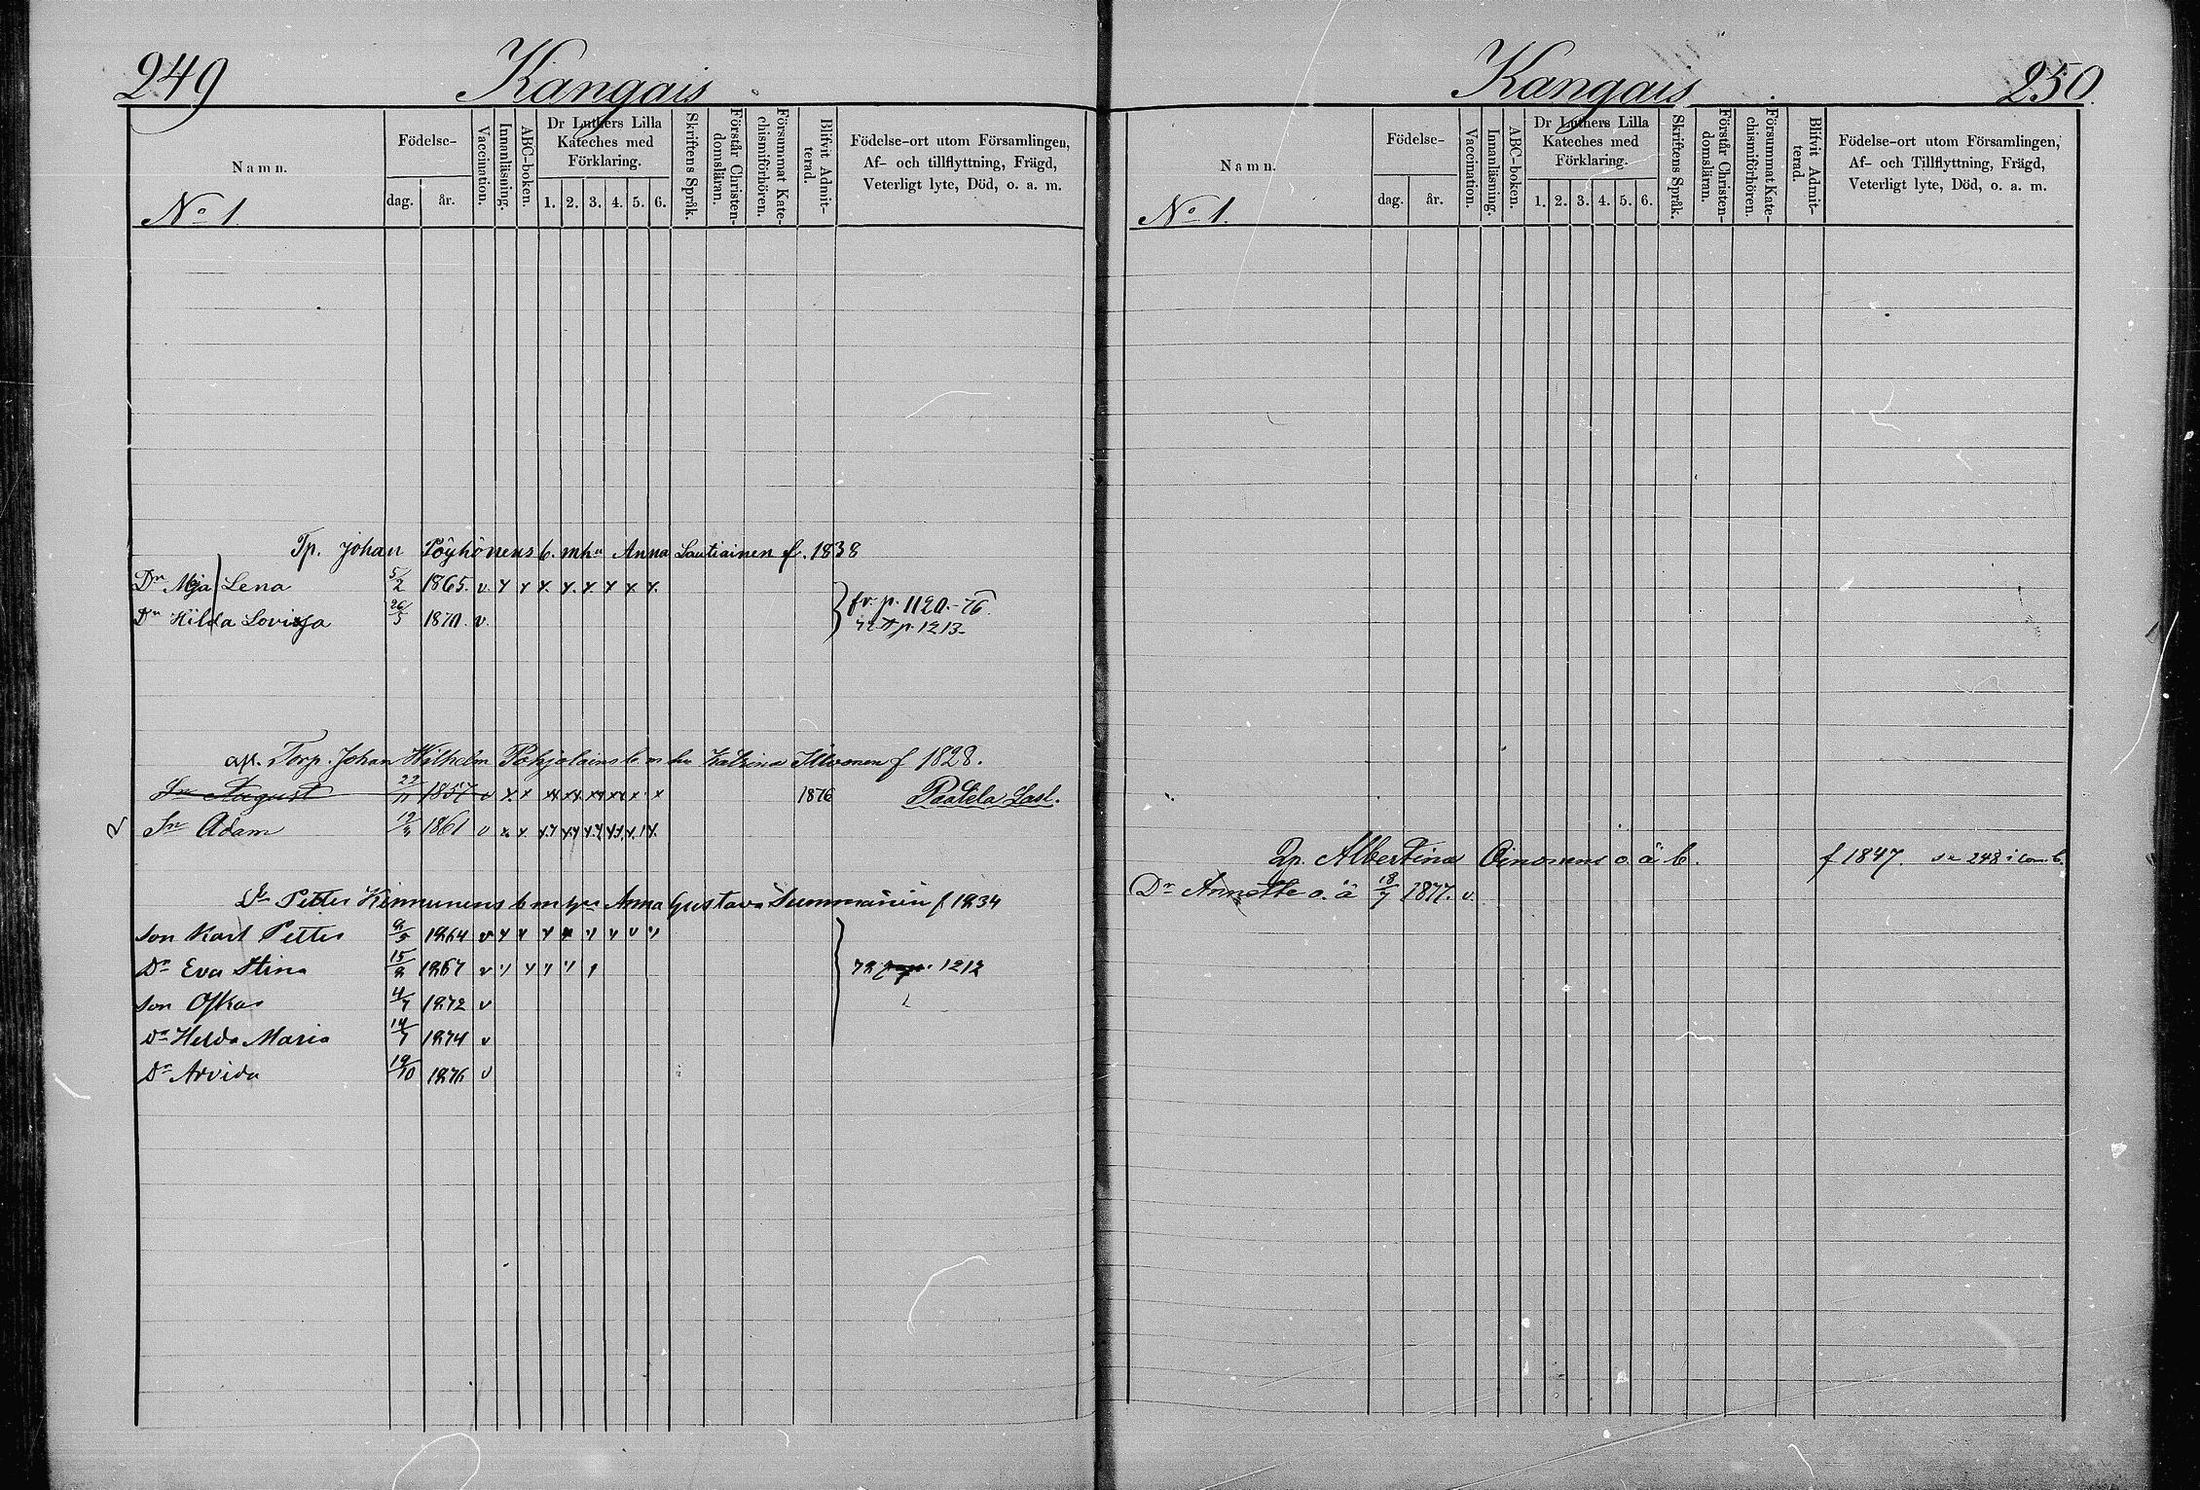 249 Kangais
Namn.
No 1.
Födelse-
dag. år.
Vaccination.
Innanläsning.
ABC-boken.
Dr Luthers Lilla
Kateches med
Förklaring.
1. 2. 3. 4. 5. 6.
Skriftens Språk.
Förstår Christen-
domsläran.
Försummat Kate-
chismiförhören.
Blifvit Admit-
terad.
Födelse-ort utom Församlingen,
Af- och tillflyttning, Frägd,
Veterligt lyte, Död, o. a. m.
Tp. Johan Pöyhönens b. m hu Anna Lautiainen f. 1838
Dr Maja Lena 5/2 1865. v x x x x x x x x
Dr Hilda Lovisa 26/5 1870. v.
fr. p. 1120.-76.
p. 1213
Torp. Johan Wilhelm Pohjolains b m hu Katrina f 1828.
Sn August 22/11 1857 v x x xx xx xx xx x x 1876 Paatela Lasl.
Sn Adam 19/9 1861 v x x
Petter Kinnunens b m hu Anna Gustava Summanen f 1834
Son Karl Petter 9/5 1864 v
Dr Eva Stina 15/8 1867 v
78 1212
Son Oskar 4/7 1872 v
Dr Helda Maria 14/7 1874 v
Dr Arvida 19/10 1876 v
Kangais 250.
Namn.
No 1.
Födelse-
dag. år.
Vaccination.
Innanläsning.
ABC-boken.
Dr Luthers Lilla
Kateches med
Förklaring.
1. 2. 3. 4. 5. 6.
Skriftens Språk.
Förstår Christen-
domsläran.
Försummat Kate-
chismiförhören.
Blifvit Admit-
terad.
Födelse-ort utom Församlingen,
Af- och Tillflyttning, Frägd,
Veterligt lyte, Död, o. a. m.
Albertina Oinonens o. ä b. f 1847. se 248
Dr Annette o. ä 18/7 1877. v.